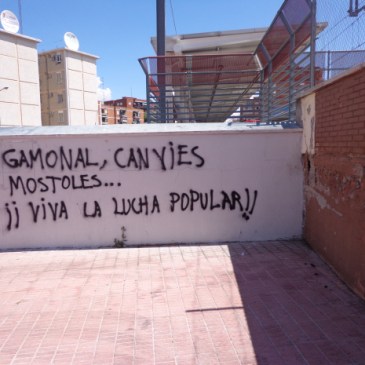 GAMONAL, CAN VIES
MOSTOLES...
¡¡ VIVA LA LUCHA POPULAR!!